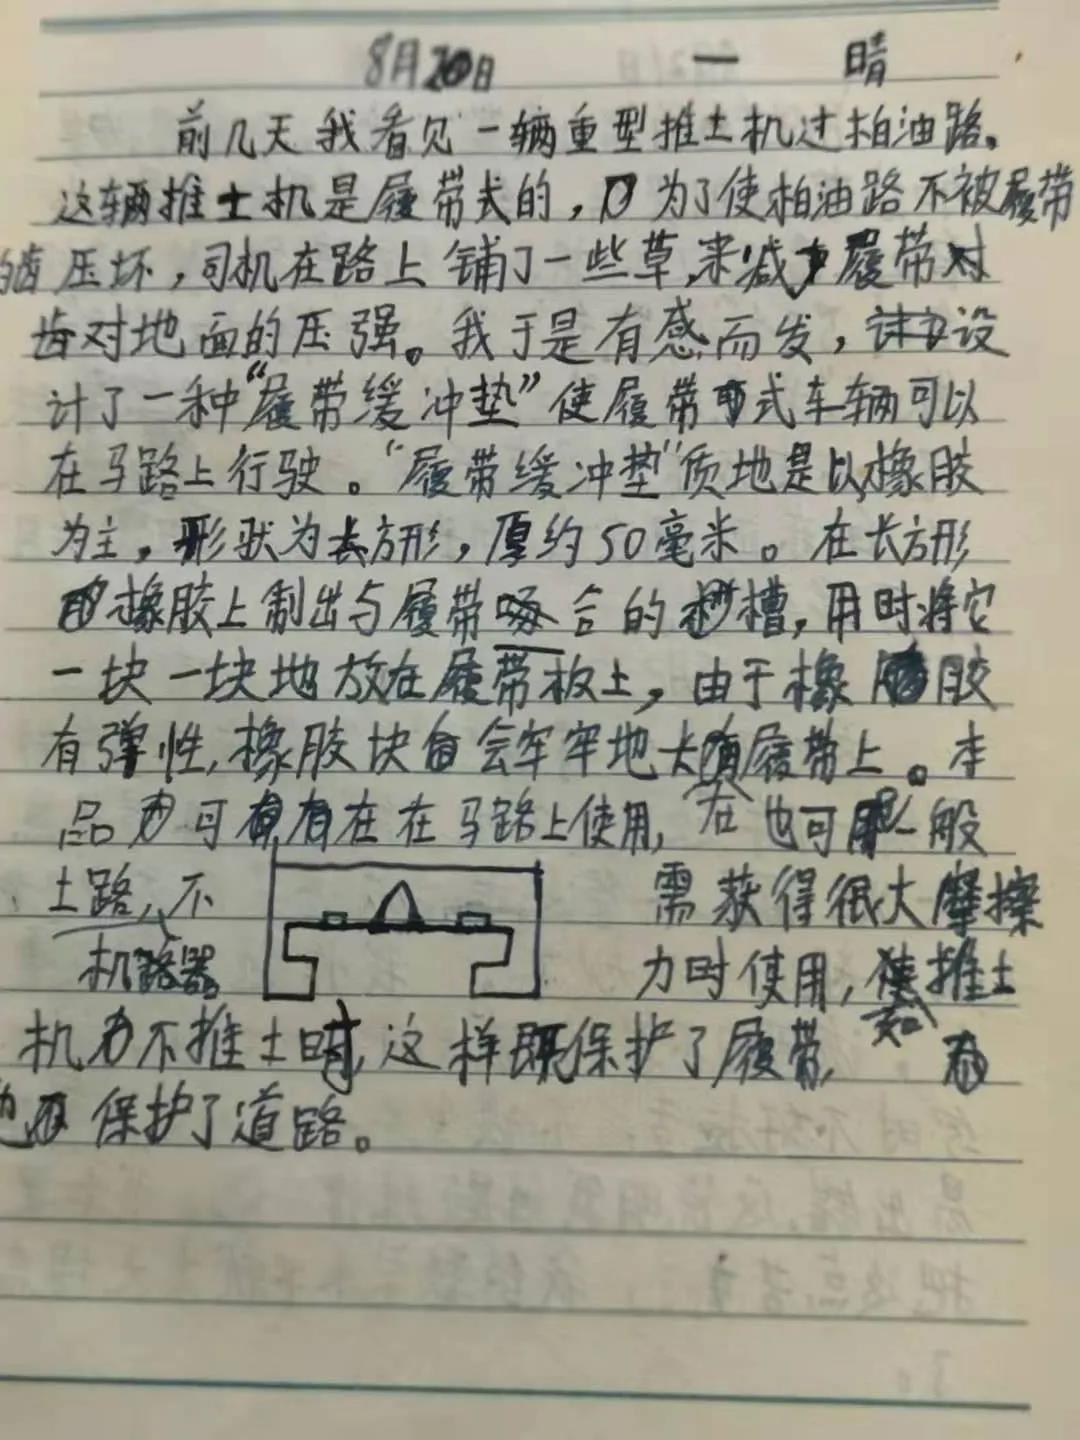 8月20日 一 晴
前几天我看见一辆重型推土机过柏油路。
这辆推土机是履带式的，为了使柏油路不被履带
齿压坏，司机在路上铺了一些草，来减少履带
齿对地面的压强。我于是有感而发，设
计了一种“履带缓冲垫”使履带式车辆可以
在马路上行驶。“履带缓冲垫”质地是以橡胶
为主，形状为长方形，厚约50毫米。在长方形
橡胶上制出与履带啄合的槽，用时将它
一块一块地放在履带板上，由于橡胶
有弹性，橡胶块会牢牢地卡在履带上。本
品可在马路上使用，也可在一般
土路，不需获得很大摩擦
机路器力时使用，如推土
机不推土时，这样既保护了履带，
也保护了道路。